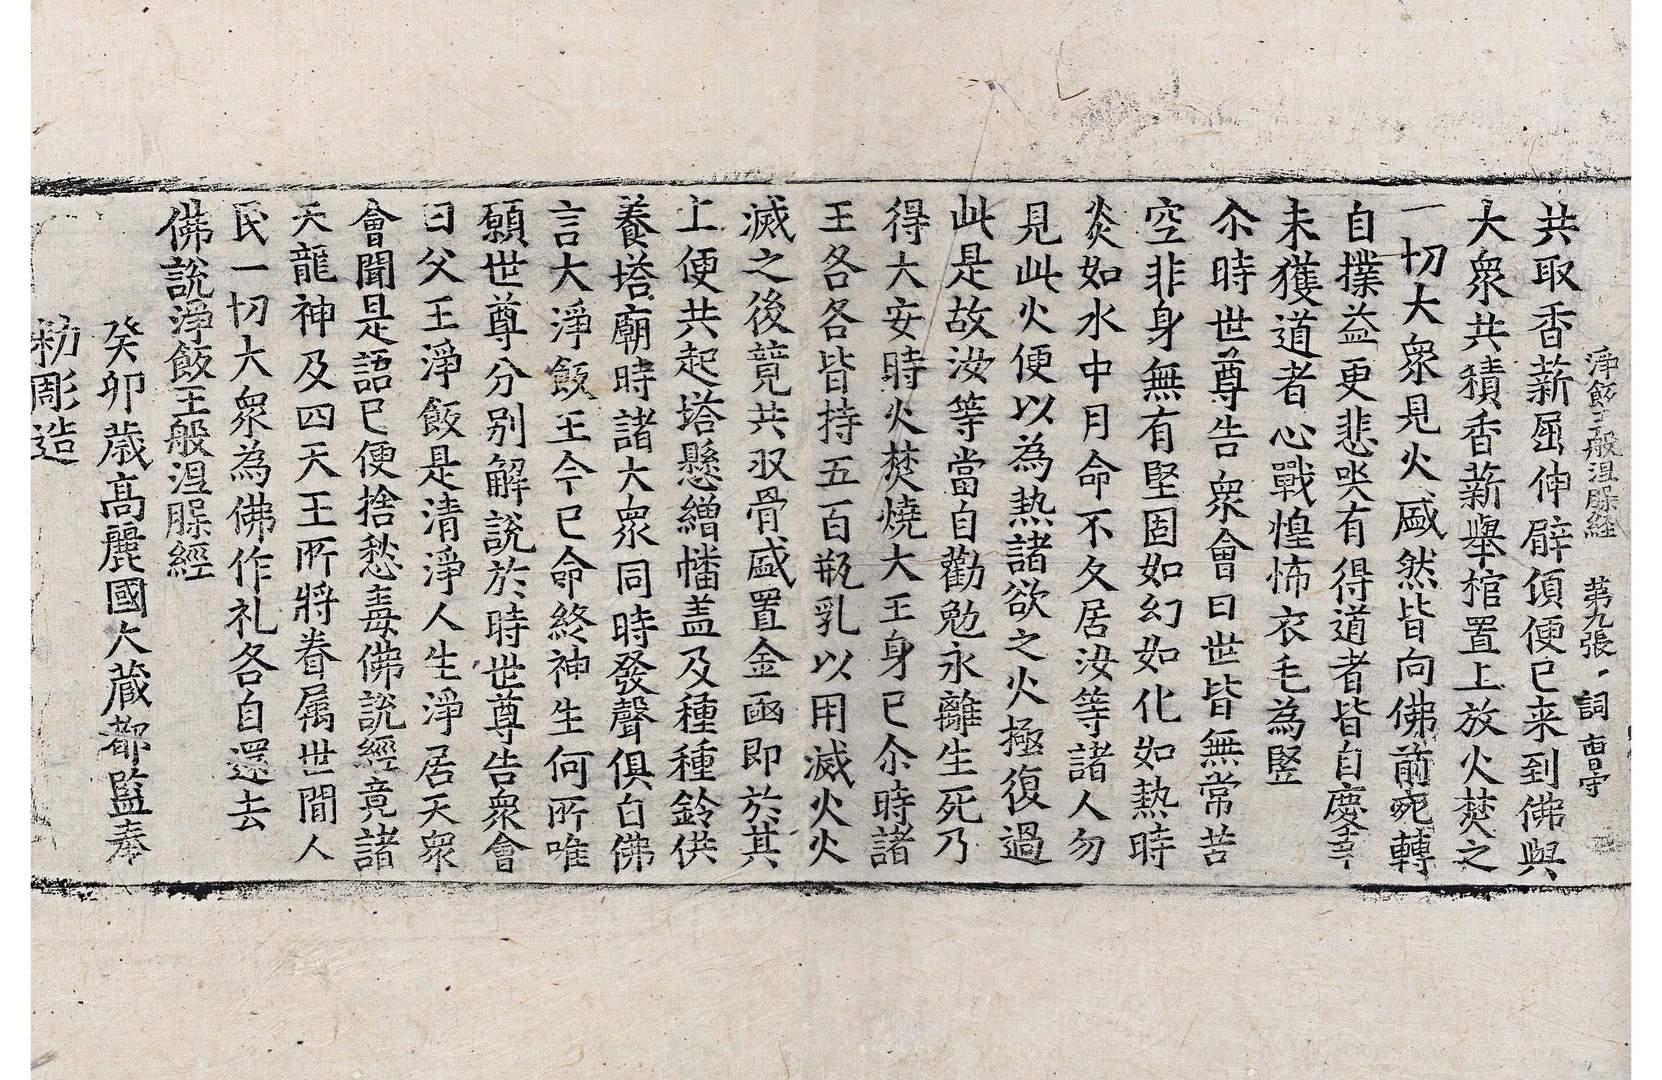 淨飯王般涅槃經 第九張 詞
共取香薪屈伸臂頃便已来到佛與
大衆共積香薪擧棺置上放火焚之
一切大衆見火盛然皆向佛前宛轉
自撲益更悲哭有得道者皆自慶幸
未獲道者心戰惶怖衣毛為竪
尒時世尊告衆會曰世皆無常苦
空非身無有堅固如幻如化如熱時
炎如水中月命不久居汝等諸人勿
見此火便以為熱諸欲之火極復過
此是故汝等當自勸勉永離生死乃
得大安時火焚燒大王身已尒時諸
王各各皆持五百瓶乳以用滅火火
滅之後競共収骨盛置金函即於其
上便共起塔懸繒幡盖及種種鈴供
養塔廟時諸大衆同時發聲俱白佛
言大淨飯王今已命終神生何所唯
願世尊分别解說於時世尊告衆會
曰父王淨飯是清淨人生淨居天衆
會聞是語已便捨愁毒佛說經竟諸
天龍神及四天王所將眷属世間人
民一切大衆為佛作礼各自還去
佛說淨飯王般涅槃經
癸卯歲高麗國大藏都監奉
勑彫造